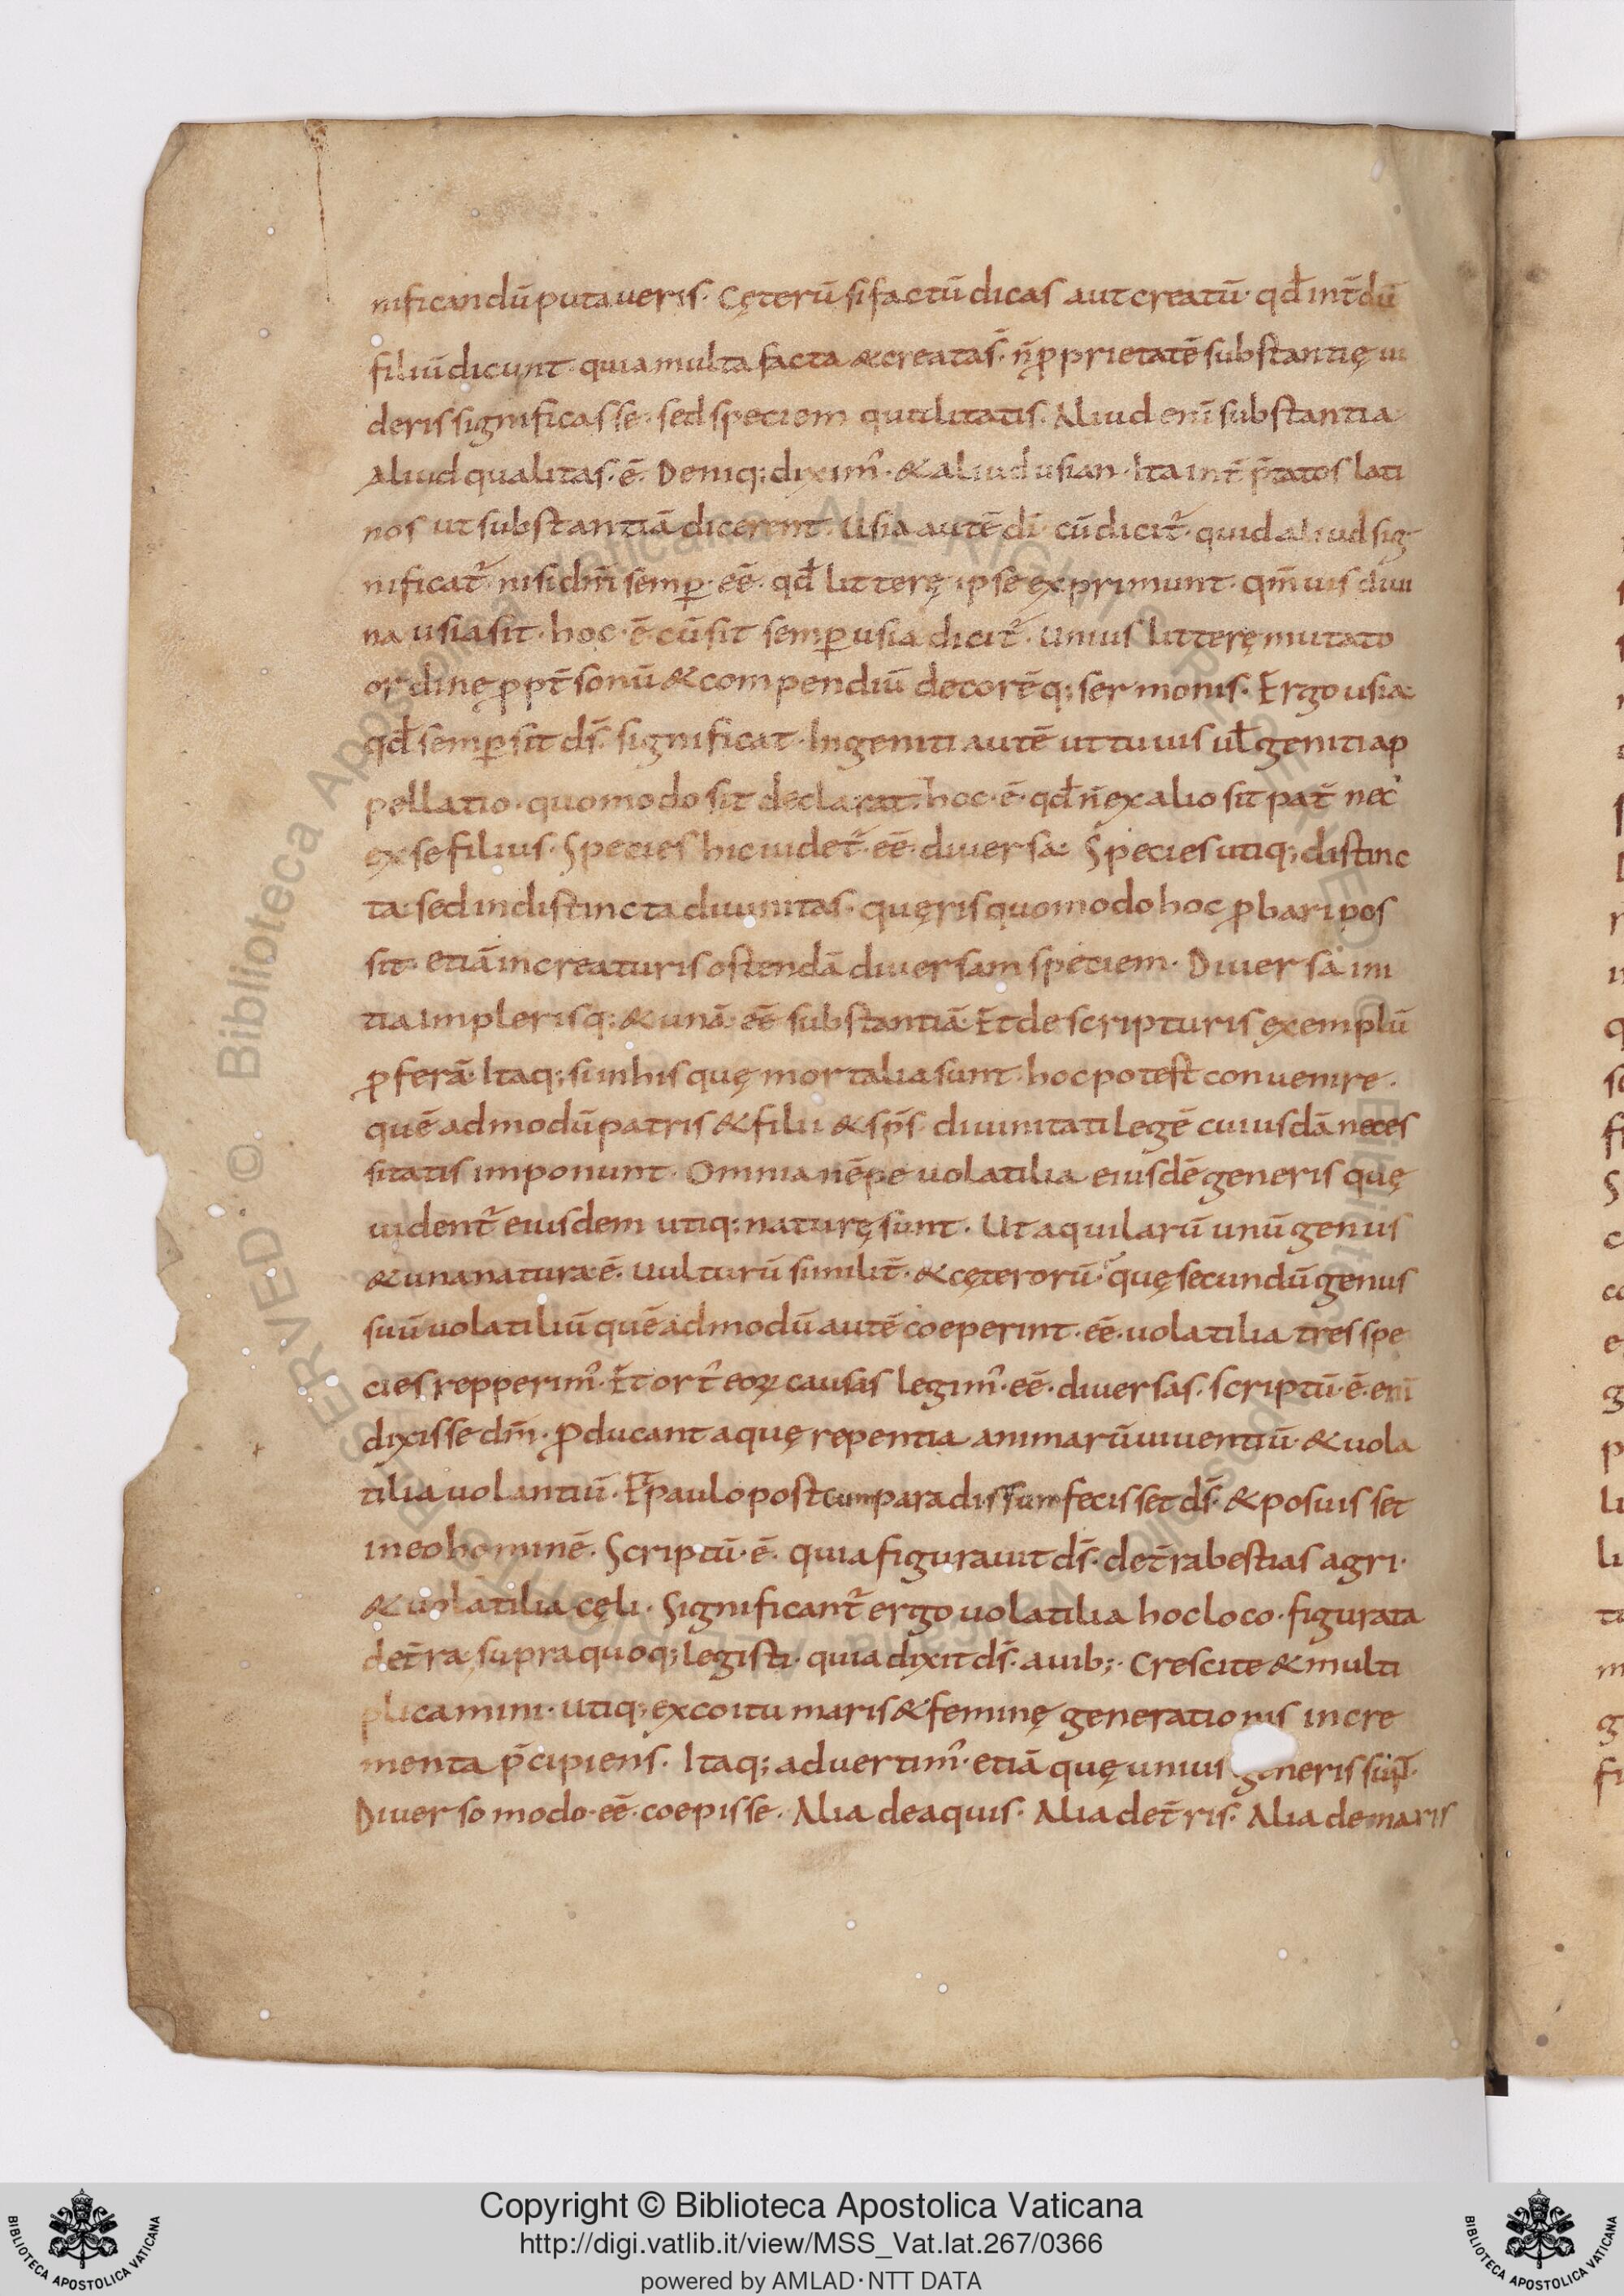 nificandū putaueris· Cęterū si factū dicas aut creatū· qđ int̄dū
filiū dicunt· quia multa facta & creata s̄· n̄ ꝓprietatē substantię ui
deris significasse· sed speciem qualitatis. Aliud enī substantia
Aliud qualitas· ē· Deniq; diximꝰ· & aliud usian· Ita int̄p̄tatos lati
nos ut substantiā dicerent· Usia autē dī cū dicit̄· quid aliud sig
nificat̄ nisi dm̄ semꝑ· eē· qđ litterę ipse exprimunt· qm̄ uis diui
na usia sit· hoc· ē cū sit semꝑ usia dicit̄· Unius litterę mutato
ordinę ꝓpt̄ sonū & compendiū decorēq; sermonis· Ergo usia
qđ semꝑ sit ds̄· significat· Ingeniti autē ut tu uis ul̄ geniti ap
pellatio· quomodo sit declarat· hoc· ē· qđ n̄ ex alio sit pat̄ nec
ex se filius· Species hic uidet̄· eē· diuersa· Species utiq; distinc
ta· sed indistincta diuinitas· quęris quomodo hoc ꝓbari pos
sit· etiā in creaturis ostendā diuersam speciem· Diuersa ini
tia implerisq; & unā· eē substantiā· Et de scripturis exemplū
ꝓferā· Itaq; si in his quę mortalia sunt· hoc potest conuenire·
quē admodū patris & filii & sp̄s· diuinitati legē cuiusdā neces
sitatis imponunt· Omnia nēpe uolatilia eiusdē generis quę
uident̄ eiusdem utiq; naturę sunt· Ut aquilarū unū genus
& una natura· ē· Uulturū similit̄· & cęterorū· quę secundū genus
suū uolatiliū quē admodū autē coeperint· eē· uolatilia tres spe
cies repperimꝰ· Et ort̄ eoꝝ causas legimꝰ· eē· diuersas· scriptū· ē· enī
dixisse dm̄· ꝓducant aquę repentia animarū uiuentiū· & uola
tilia uolantiū· Et paulo post cum paradissum fecisset ds̄· & posuisset
in eo hominē· Scriptū· ē· quia figurauit ds̄· det̄ra bestias agri·
& uolatilia cęli· Significant̄ ergo uolatilia hoc loco· figurata
det̄ra supra quoq; legisti· quia dixit ds̄· auib;· Crescite & multi
plicamini· utiq; ex coitu maris & feminę generationis incre
menta p̄cipiens· Itaq; aduertimꝰ· etiā quę unius generis sūt·
Diuerso modo· eē· coepisse· Alia de aquis· Alia det̄ris· Alia de maris
© Biblioteca Apostolica Vaticana ALL RIGHTS RESERVED
© Biblioteca Apostolica Vaticana ALL RIGHTS RESERVED
Copyright © Biblioteca Apostolica Vaticana
http://digi.vatlib.it/view/MSS_Vat.lat.267/0366
powered by AMLAD·NTT DATA
BIBLIOTECA APOSTOLICA VATICANA
BIBLIOTECA APOSTOLICA VATICANA